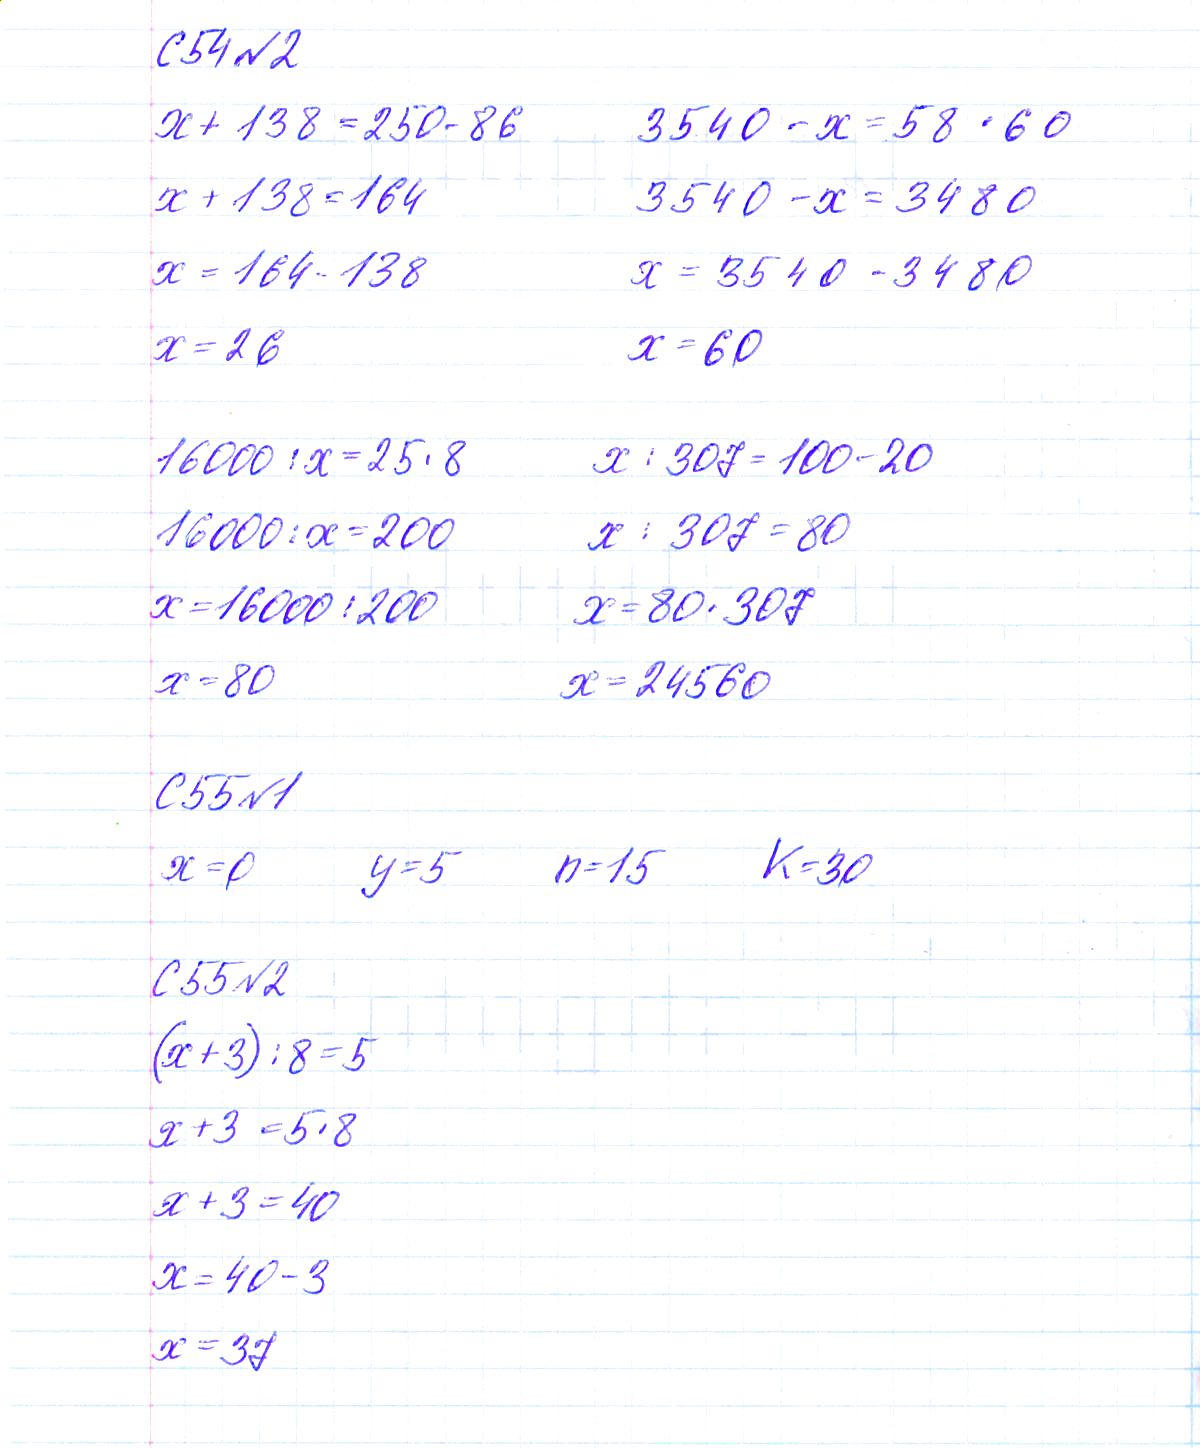 С54№2
x + 138 = 250 - 86 3540 - x = 58 · 60
x + 138 = 164 3540 - x = 3480
x = 164 - 138 x = 3540 - 3480
x = 26 x = 60
16000 : x = 25 · 8 x : 307 = 100 - 20
16000 : x = 200 x : 307 = 80
x = 16000 : 200 x = 80 · 307
x = 80 x = 24560
С55№1
x = 0 y = 5 n = 15 K = 30
С55№2
(x + 3) : 8 = 5
x + 3 = 5 · 8
x + 3 = 40
x = 40 - 3
x = 37